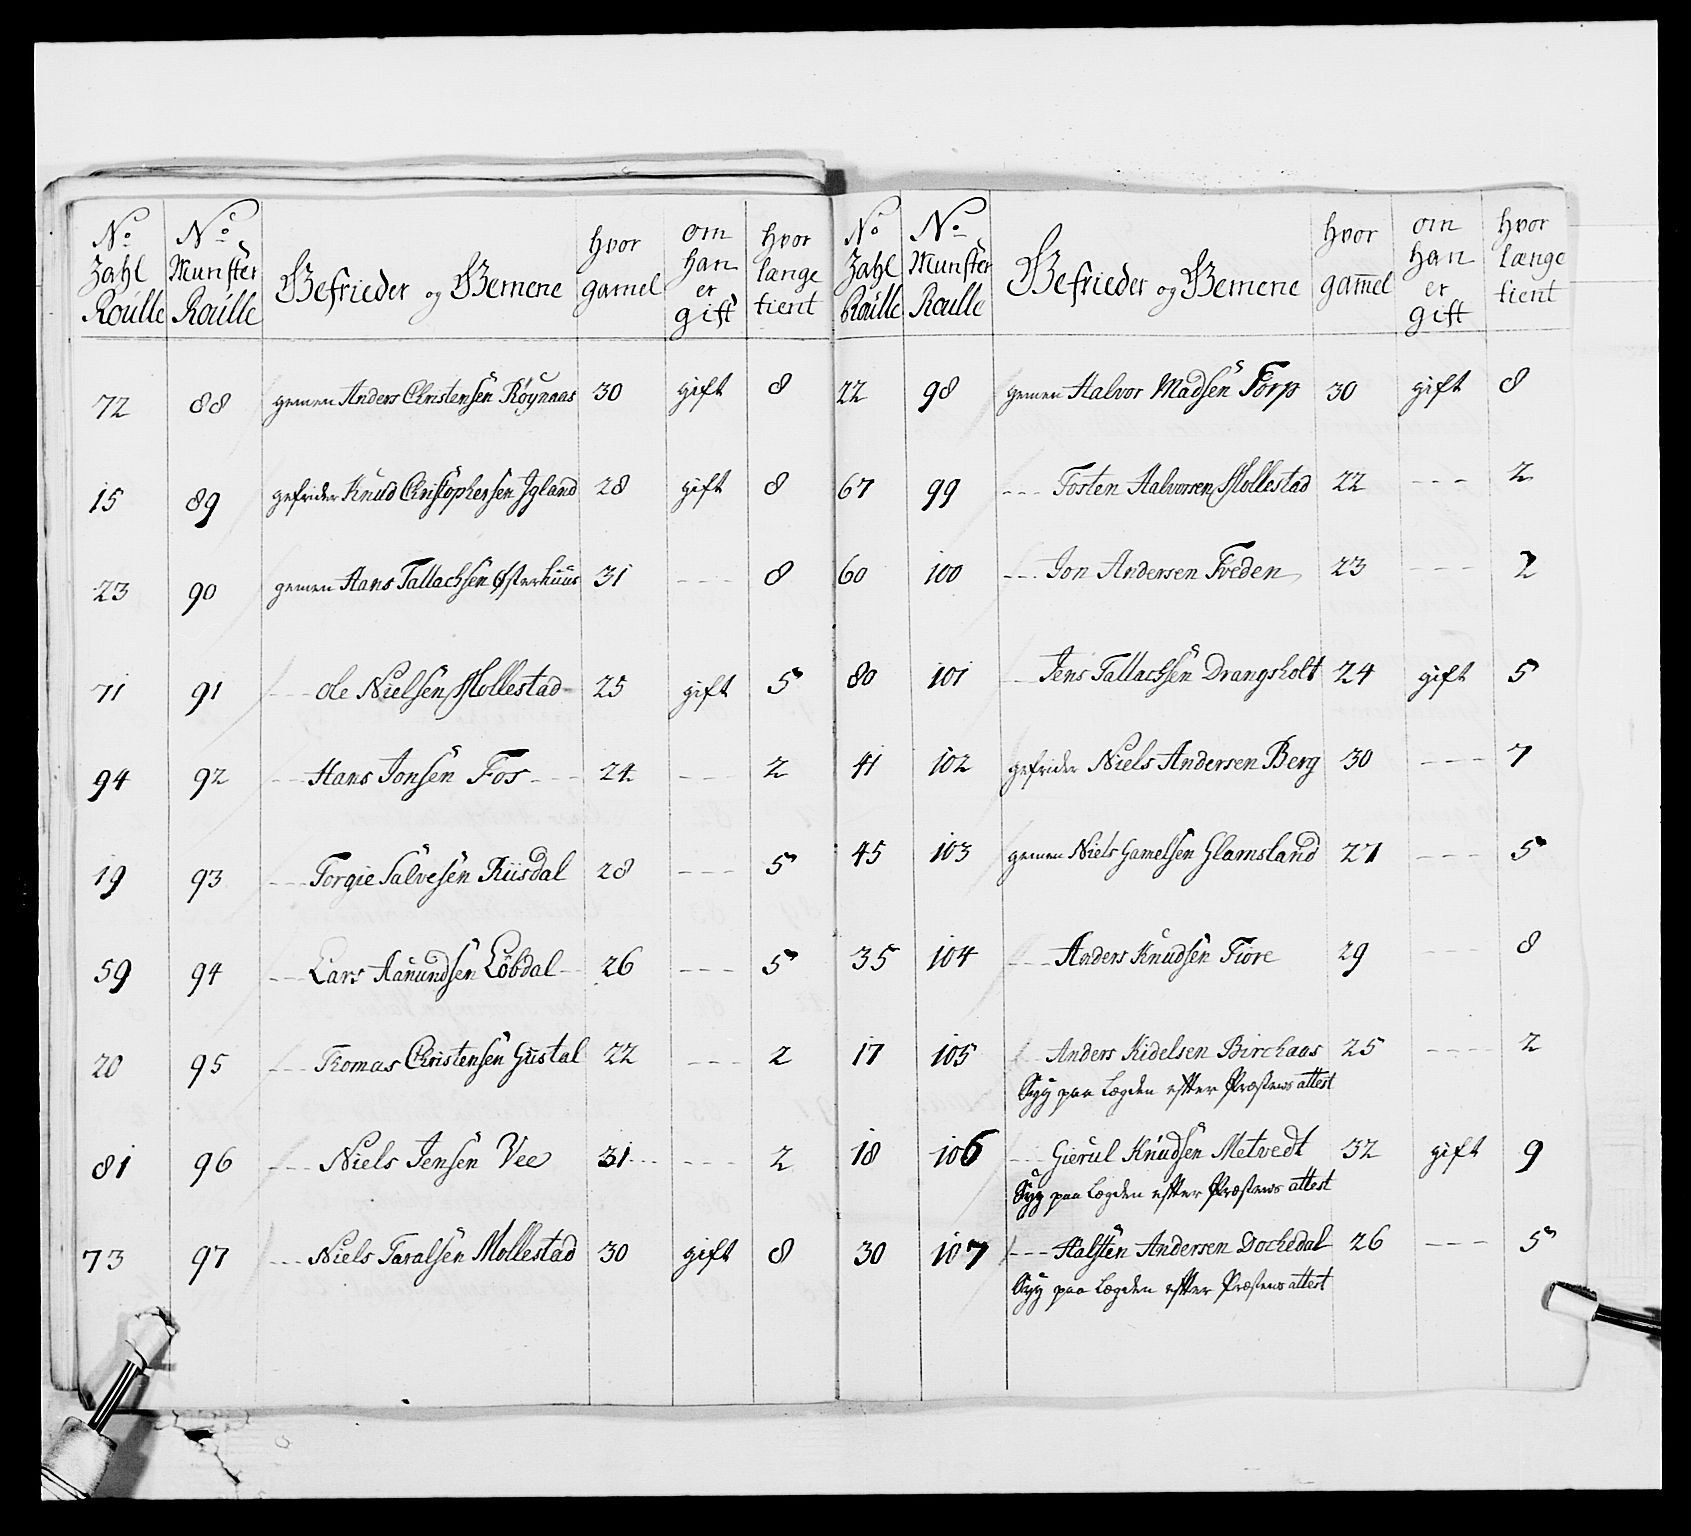 No Zahl Roulle | No Munster Roulle | Gefrieder og Gemene | hvor gamel | om han er gift | hvor længe tient
72 88 gemen Anders Christensen Röynaas 30 gift 8
15 89 gefrider Knud Christophersen Igland 28 gift 8
23 90 gemen Hans Tallachsen Østerhuus 31 --- 8
71 91 --- Ole Nielsen Mollestad 25 gift 5
94 92 --- Hans Jonsen Fos --- 24 --- 2
19 93 --- Torgie Salvesen Riisdal 28 --- 5
59 94 --- Lars Aanundsen Löbdal 26 --- 5
20 95 --- Thomas Christensen Gustal 22 --- 2
81 96 --- Niels Jensen Vee 31 --- 2
73 97 --- Niels Taralsen Mollestad 30 gift 8
No Zahl Roulle | No Munster Roulle | Gefrieder og Gemene | hvor gam̄el | om han er gift | hvor længe tient
22 98 gemen Halvor Madsen Torp 30 gift 8
67 99 --- Tosten Halvorsen Mollestad 22 --- 2
60 100 --- Jon Andersen Tveden 23 --- 2
80 101 --- Jens Tallachsen Drangsholt 24 gift 5
41 102 gefrider Niels Andersen Berg 30 --- 7
45 103 gemen Niels Gamelsen Glamsland 27 --- 5
35 104 --- Anders Knudsen Fiøre 29 --- 8
17 105 --- Anders Kidelsen Birchaas 25 --- 2
Syg paa Lægden efter Præstens attest
18 106 --- Gierul Knudsen Metvedt 32 gift 9
Syg paa Lægden efter Præstens attest
30 107 --- Halsten Andersen Dochedal 26 --- 5
Syg paa Lægden efter Præstens attest